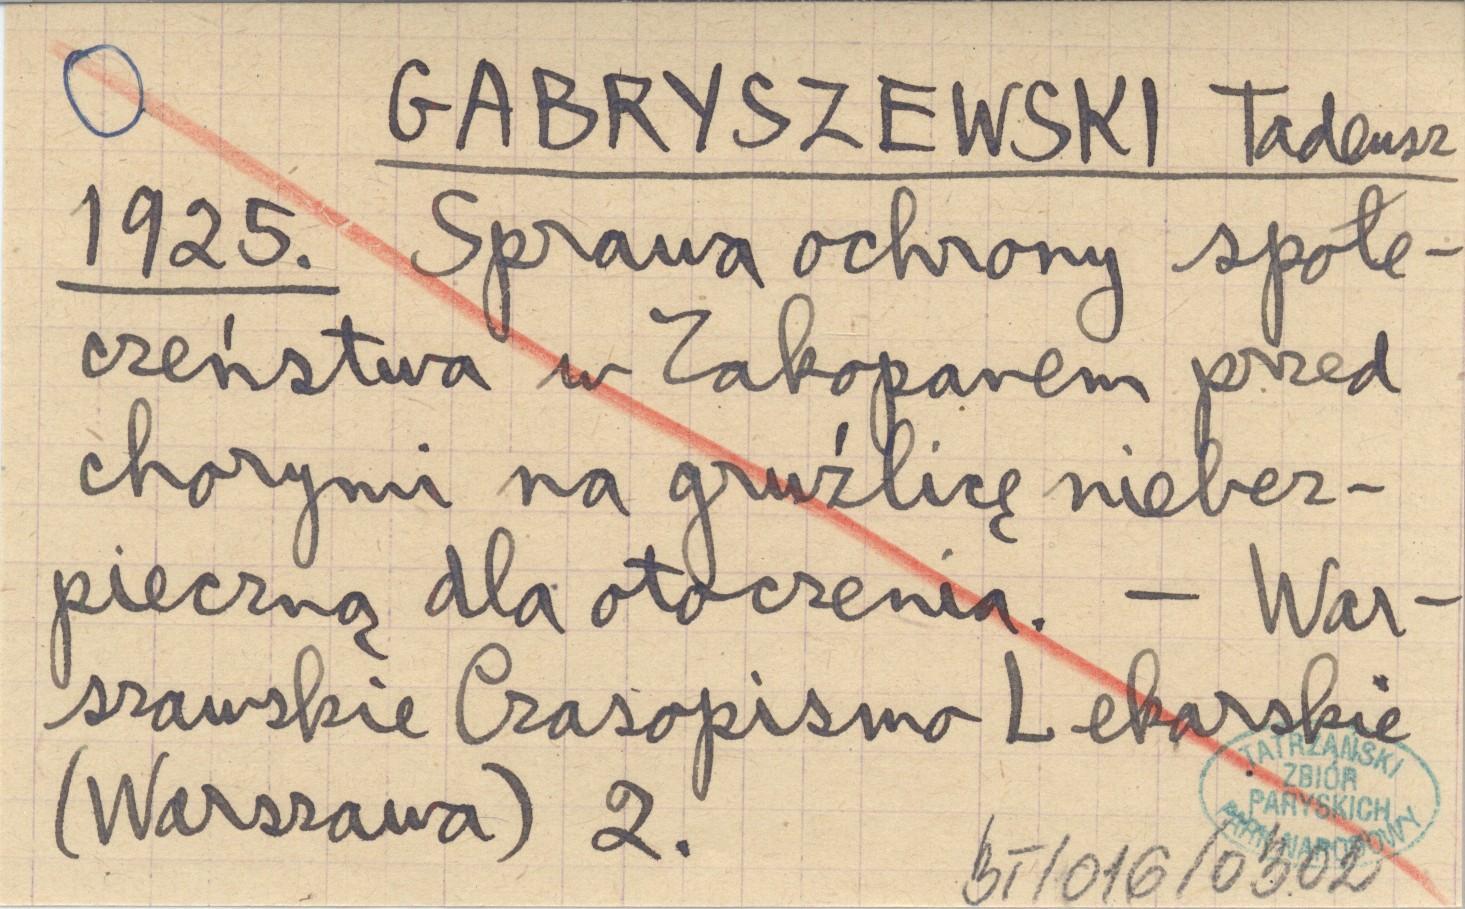 GABRYSZEWSKI Tadeusz
1925. Sprawa ochrony społe-
czeństwa w Zakopanem przed
chorymi na gruźlicę niebez-
pieczną dla otoczenia. — War-
szawskie Czasopismo Lekarskie
(Warszawa) 2.
TATRZAŃSKI
ZBIÓR
PARYSKICH
DAR NARODOWY
BT/016/0302